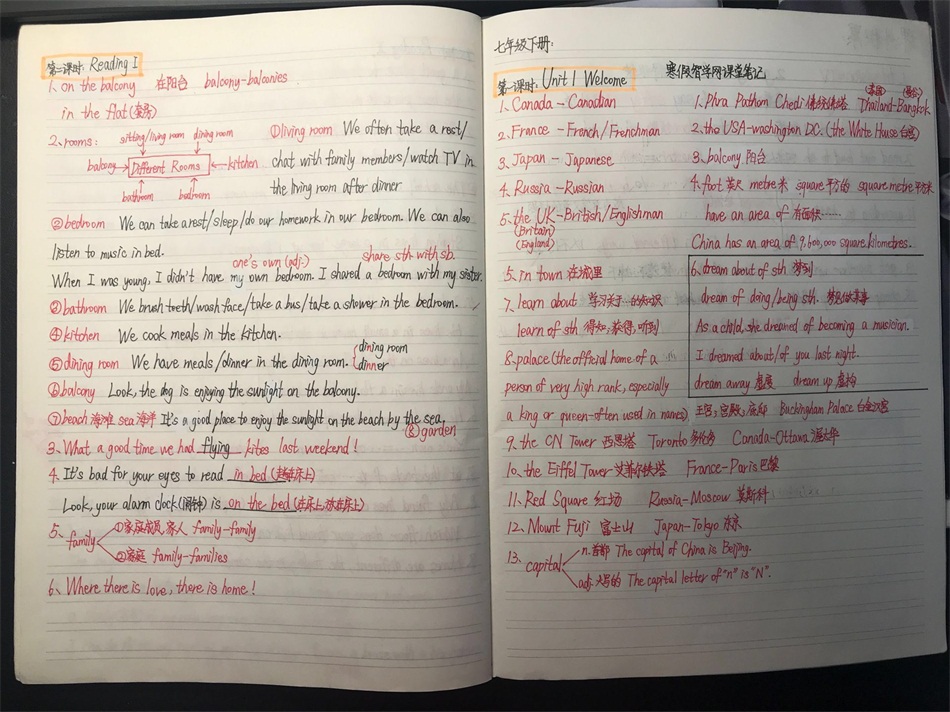 第二课时: Reading I
1、on the balcony 在阳台 balcony-balconies
in the flat(套房)
2、rooms: sitting/living room dining room
balcony Different Rooms kitchen
bathroom bedroom
①living room We often take a rest/
chat with family members/watch TV in
the living room after dinner
②bedroom We can take a rest/sleep/do our homework in our bedroom. We can also
listen to music in bed.
one's own (adj.) share sth with sb.
When I was young, I didn't have my own bedroom. I shared a bedroom with my sister.
③bathroom We brush teeth/wash face/take a bus/take a shower in the bedroom.
④kitchen We cook meals in the kitchen.
⑤dining room We have meals/dinner in the dining room. dining room
dinner
⑥balcony Look, the dog is enjoying the sunlight on the balcony.
⑦beach 海滩 sea 海洋 It's a good place to enjoy the sunlight on the beach by the sea.
⑧garden
3、What a good time we had flying kites last weekend!
4、It's bad for your eyes to read in bed (躺在床上)
Look, your alarm clock(闹钟) is on the bed (在床上,放在床上)
5、family ①家庭成员,家人 family-family
②家庭 family-families
6、Where there is love, there is home!
七年级下册:
第一课时: Unit 1 Welcome 寒假智学网课堂笔记
1、Canada - Canadian
2、France - French/Frenchman
3、Japan - Japanese
4、Russia - Russian
5、the UK-British/Englishman
(Britain)
(England)
5、in town 在城里
7、learn about 学习关于…的知识
learn of sth 得知,获得,听到
8、palace (the official home of a
person of very high rank, especially
a king or queen-often used in names) 王宫;宫殿;府邸 Buckingham Palace 白金汉宫
9、the CN Tower 西恩塔 Toronto 多伦多 Canada-Ottawa 渥太华
10、the Eiffel Tower 艾菲尔铁塔 France-Paris 巴黎
11、Red Square 红场 Russia-Moscow 莫斯科
12、Mount Fuji 富士山 Japan-Tokyo 东京
13、capital n.首都 The capital of China is Beijing.
adj.大写的 The capital letter of "n" is "N".
(泰国) (曼谷)
1、Phra Pathom Chedi 佛统佛塔 Thailand-Bangkok
2、the USA-washington DC. (the White House 白宫)
3、balcony 阳台
4、foot 英尺 metre 米 square 平方的 square metre 平方米
have an area of 有面积……
China has an area of 9,600,000 square kilometres.
6、dream about of sth 梦到
dream of doing/being sth. 梦想做某事
As a child, she dreamed of becoming a musician.
I dreamed about/of you last night.
dream away 虚度 dream up 虚构